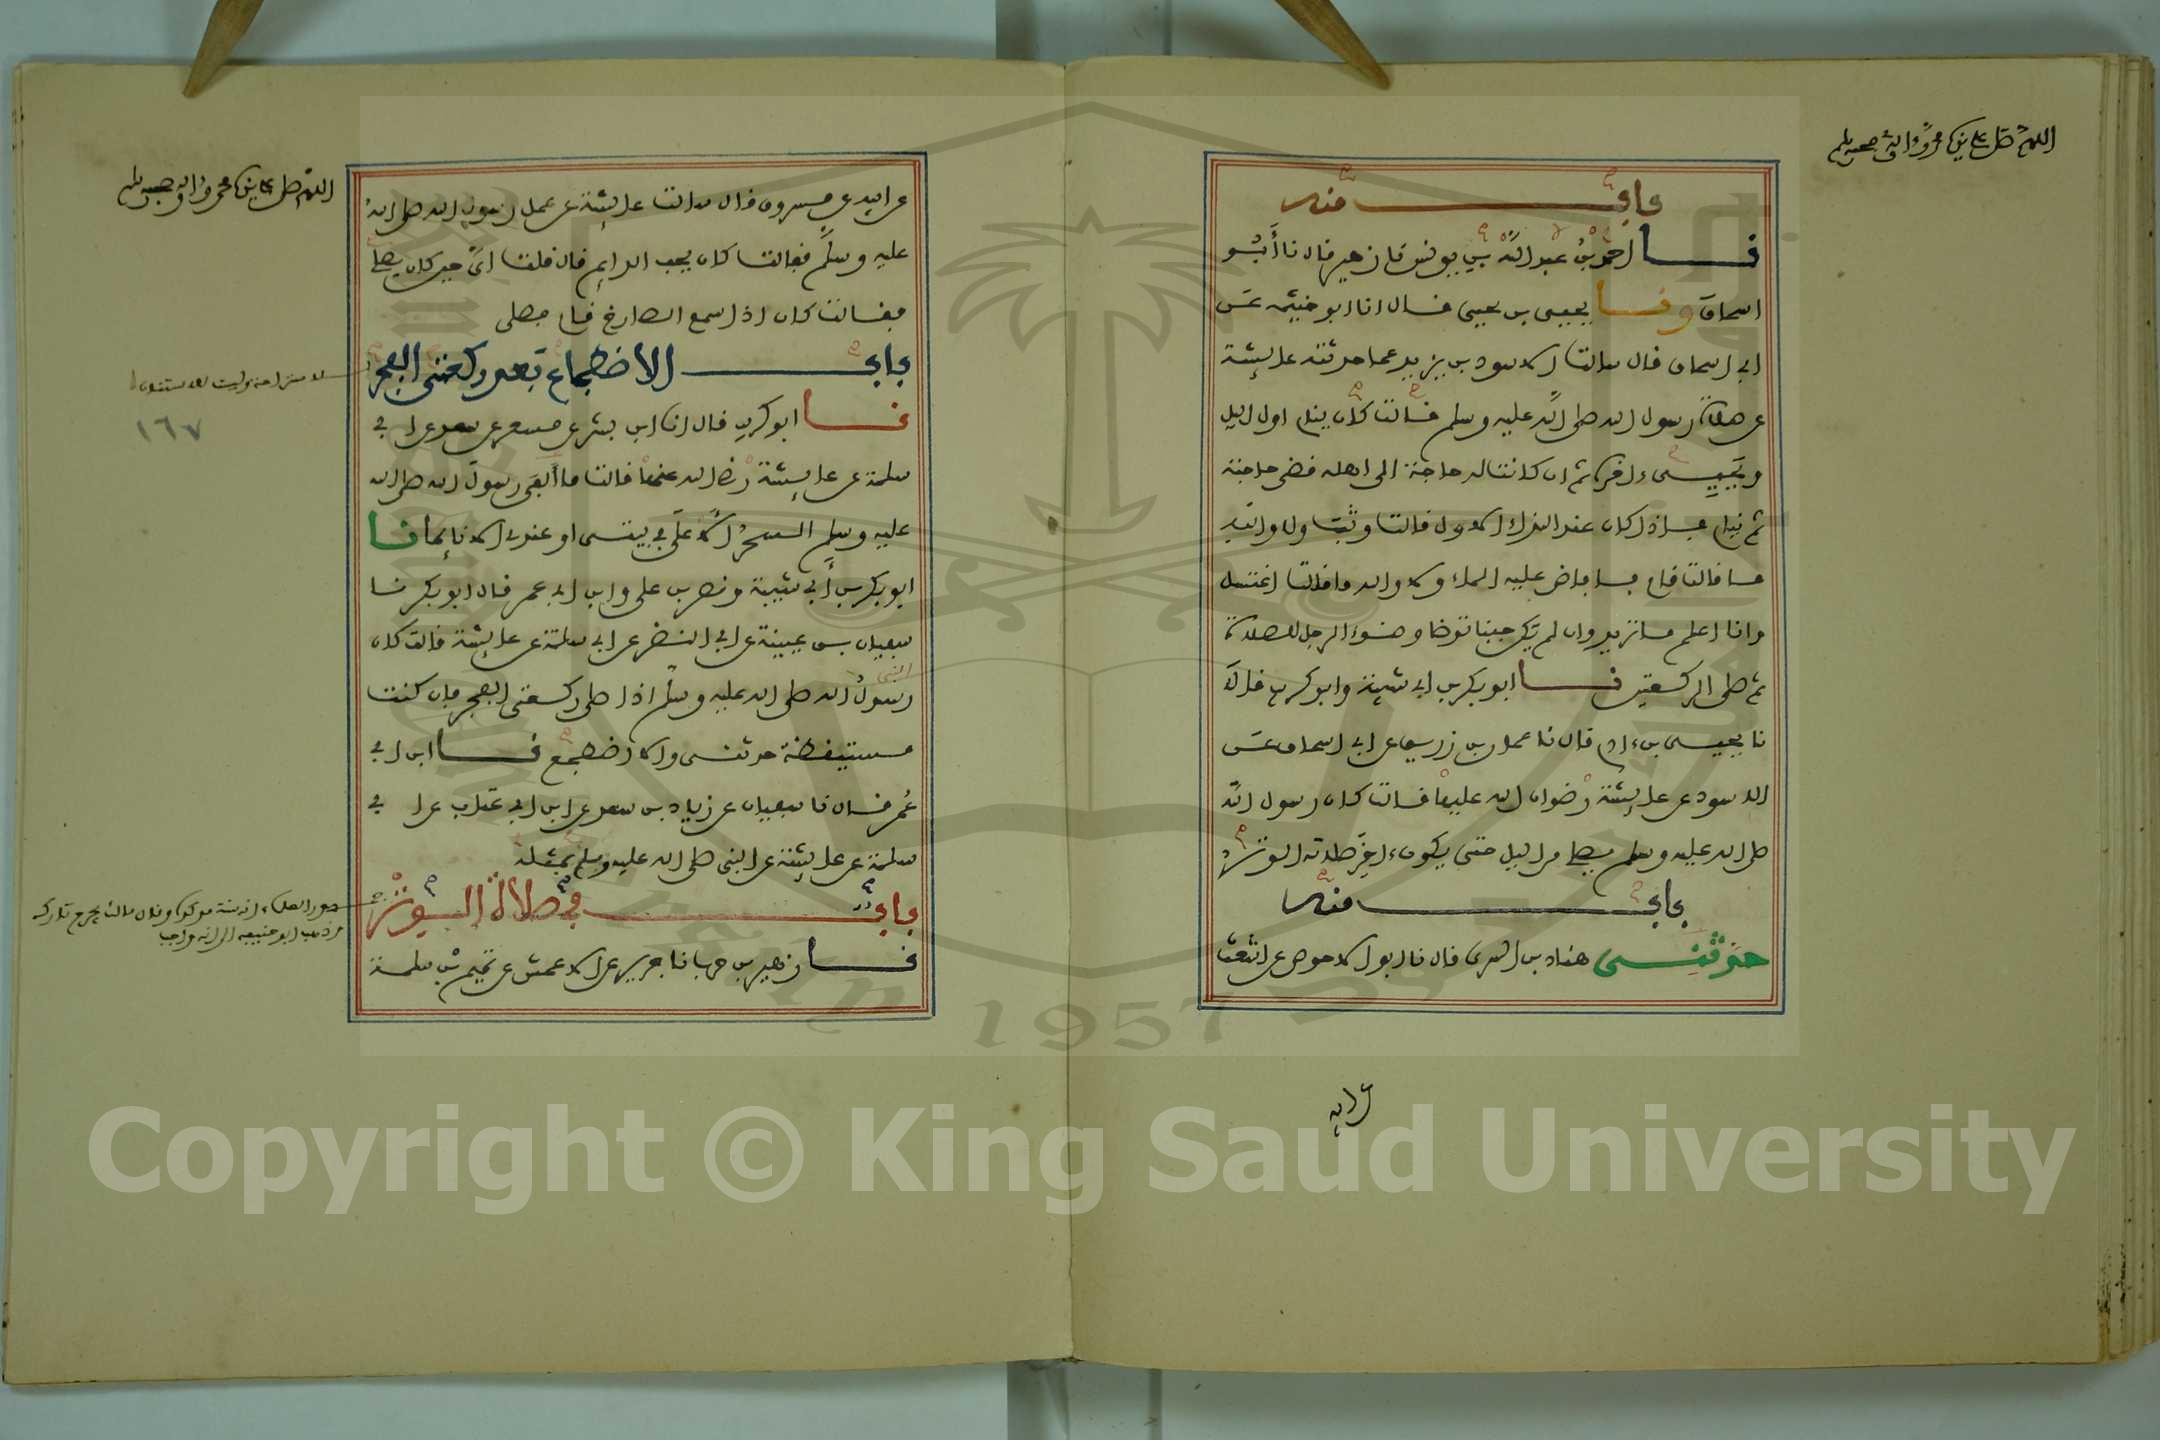 اللهم صل على نبيك محمد وءاله وصحبه وسلم
باب منه
نا احمد بن عبد الله بن يونس قا نا زهير قال نا أبو
اسحاق ونا يحيى بن يحيى قال انا ابو خيثمة عن
ابي اسحاق قال سالت الاسود بن يزيد عما حدثته عايشة
عن صلاة رسول الله صلى الله عليه وسلم قالت كان ينام اول اليل
ويحيى ءاخره ثم ان كانت له حاجة الى اهله قضى حاجته
ثم ينام فاذا كان عند الندا الاول قالت وثب ولا والله
ما قالت قام فافاض عليه الماء ولا والله ما قالت اغتسل
وانا اعلم ما تريد وان لم يكن جنبا توضا وضوء الرجل للصلاة
ثم صلى الركعتين نا ابو بكر بن ابي شيبة وابو كريب قالا
نا يحيى بن ءادم قال نا عمار بن زريق عن ابي اسحاق عن
الاسود عن عايشة رضوان الله عليها قالت كان رسول الله
صلى الله عليه وسلم يصلي من اليل حتى يكون ءاخر صلاته الوتر
باب منه
حدثني هناد بن السري قال نا ابو الاحوص عن اشعث
عن ابيه
اللهم صل على نبيك محمد وءاله وصحبه وسلم
عن ابيه عن مسروق قال سالت عايشة عن عمل رسول الله صلى الله
عليه وسلم فقالت كان يحب الدايم قال قلت اي حين كان يصلي
فقالت كان اذا سمع الصارخ قام فصلى
باب الاضطجاع بعد ركعتي الفجر
نا ابو كريب قال انا ابن بشر عن مسعر عن سعد عن ابي
سلمة عن عايشة رضي الله عنها قالت ما ألفى رسول الله صلى الله
عليه وسلم السحر الاعلى في بيتي او عندي الا نايما نا
ابو بكر بن أبي شيبة ونصر بن علي وابن ابي عمر قال ابو بكر نا
سفيان بن عيينة عن ابي النضر عن ابي سلمة عن عايشة قالت كان
النبي
رسول الله صلى الله عليه وسلم اذا صلى ركعتي الفجر فان كنت
مستيقظة حدثني والا اضطجع نا ابن ابي
عمر قال نا سفيان عن زياد بن سعد عن ابن ابي عتاب عن ابي
سلمة عن عايشة عن النبي صلى الله عليه وسلم بمثله
باب في صلاة الوتر
نا زهير بن حرب نا جرير عن الاعمش عن تميم بن سلمة
١٦٧
Copyright © King Saud University
1957